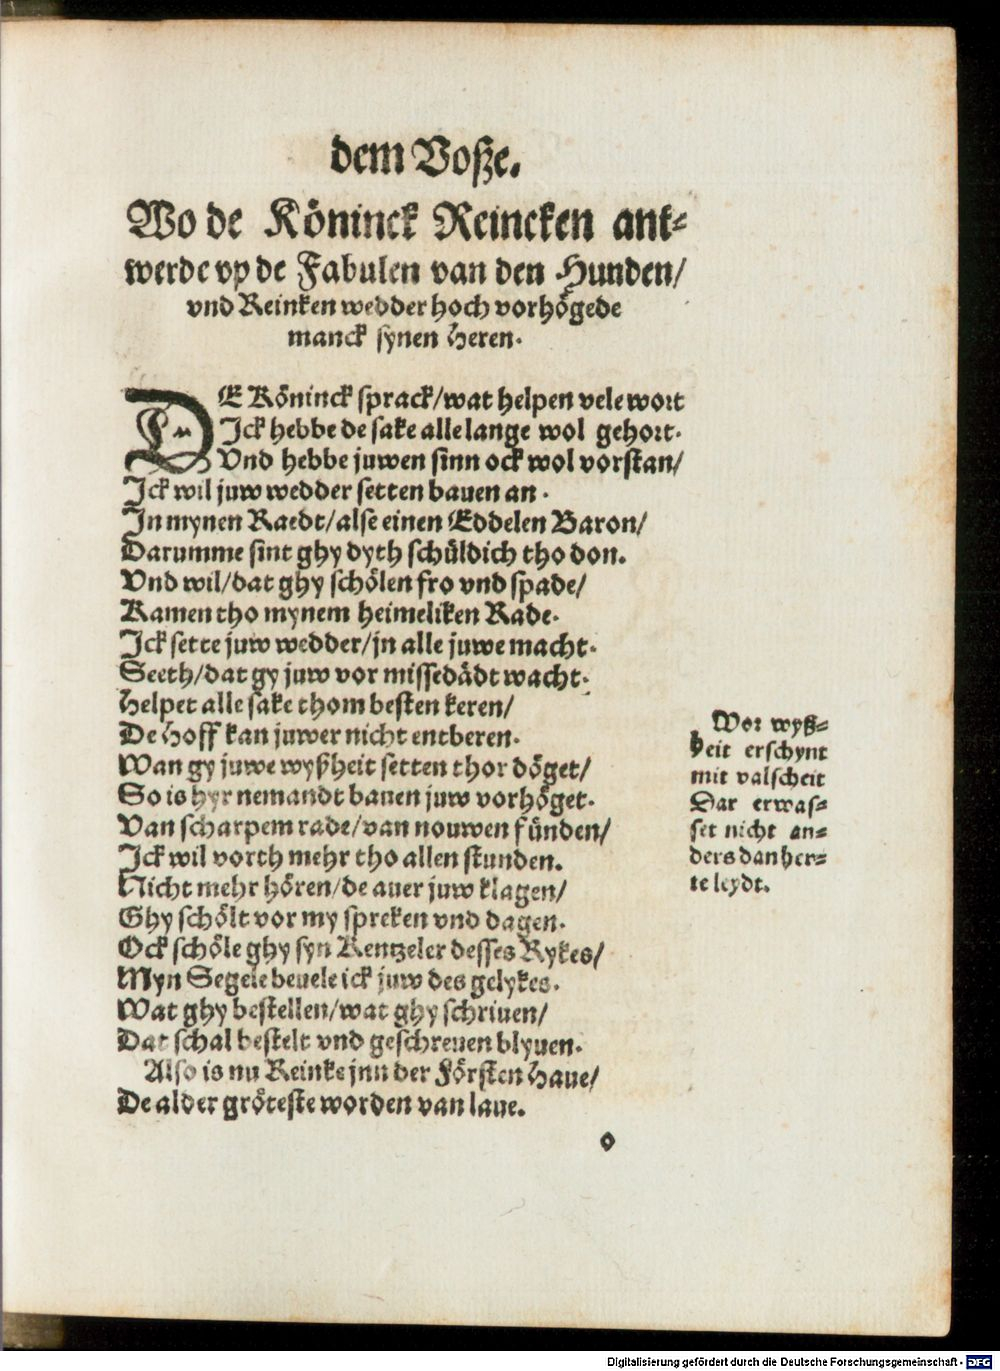 dem Voße.
Wo de Köninck Reincken ant⸗
werde vp de Fabulen van den Hunden/
vnd Reinken wedder hoch vorhögede
manck synen Heren.
DE Köninck sprack/wat helpen vele wort
Ick hebbe de sake alle lange wol gehort.
Vnd hebbe juwen sinn ock wol vorstan/
Ick wil juw wedder setten bauen an.
In mynen Raedt/alse einen Eddelen Baron/
Darumme sint ghy dyth schüldich tho don.
Vnd wil/dat ghy schölen fro vnd spade/
Kamen tho mynem heimeliken Rade.
Ick sette juw wedder/jn alle juwe macht.
Seeth/dat gy juw vor missedådt wacht.
Helpet alle sake thom besten keren/
De Hoff kan juwer nicht entberen.
Wan gy juwe wyßheit setten thor döget/
So is hyr nemandt bauen juw vorhöget.
Van scharpem rade/van nouwen fünden/
Ick wil vorth mehr tho allen stunden.
Nicht mehr hören/de auer juw klagen/
Ghy schölt vor my spreken vnd dagen.
Ock schöle ghy syn Kentzeler desses Rykes/
Myn Segele beuele ick juw des gelykes.
Wat ghy bestellen/wat ghy schriuen/
Dat schal bestelt vnd geschreuen blyuen.
Also is nu Reinke jnn der Försten Haue/
De alder gröteste worden van laue.
Wor wyß⸗
heit erschynt
mit valscheit
Dar erwas⸗
set nicht an⸗
ders dan her⸗
te leydt.
o
Digitalisierung gefördert durch die Deutsche Forschungsgemeinschaft - DFG